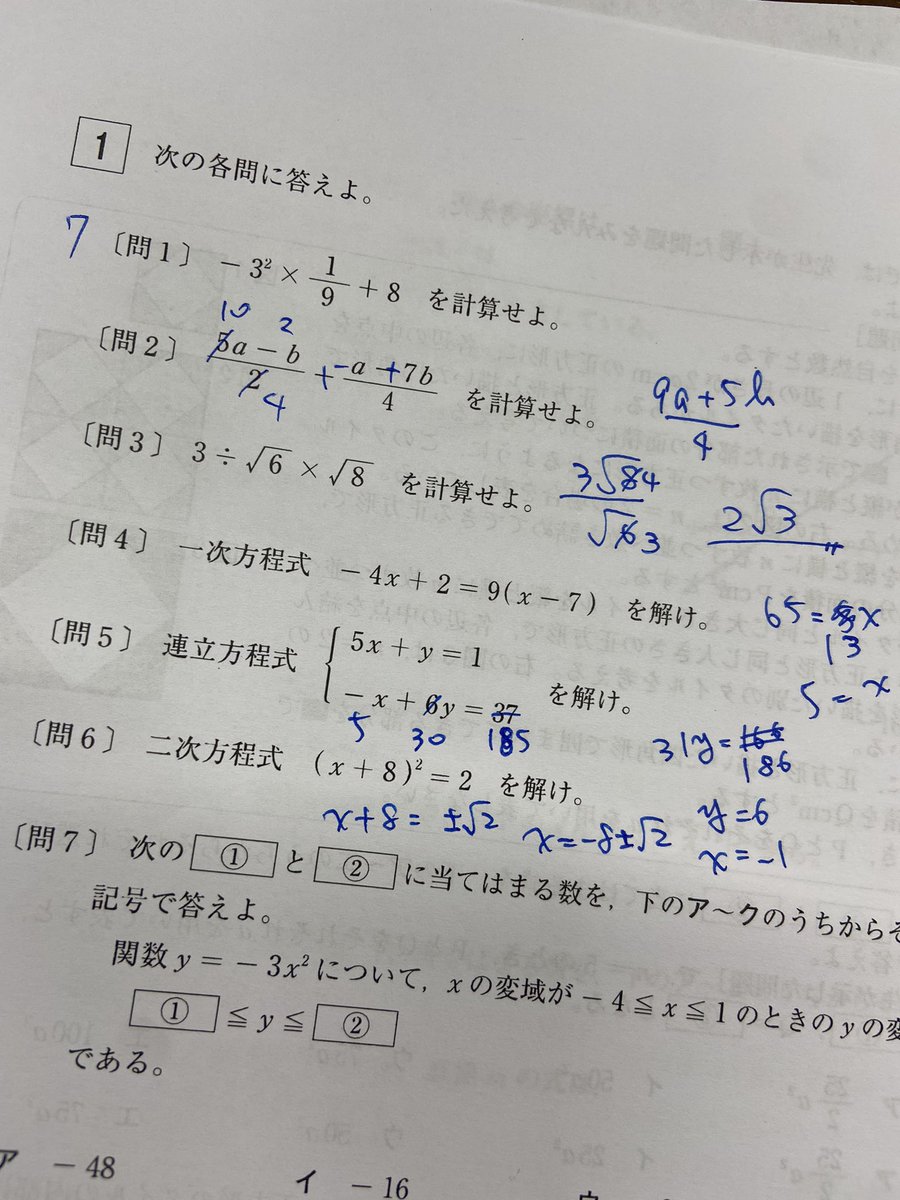 1 次の各問に答えよ。
7 〔問1〕 −3² × 1/9 + 8 を計算せよ。
10 2
〔問2〕 (5a − b)/2 + (−a + 7b)/4 を計算せよ。 (9a+5b)/4
4
〔問3〕 3 ÷ √6 × √8 を計算せよ。 3√8 4 / √6 3 2√3
〔問4〕 一次方程式 −4x + 2 = 9(x − 7) を解け。 65 = x
13
5 = x
〔問5〕 連立方程式 { 5x + y = 1
−x + 6y = 37 を解け。
5 30 185 31y =
186
〔問6〕 二次方程式 (x + 8)² = 2 を解け。
x+8 = ±√2 x=−8±√2 y=6
x=−1
〔問7〕 次の ① と ② に当てはまる数を, 下のア〜クのうちからそ
記号で答えよ。
関数 y = −3x² について, x の変域が −4 ≦ x ≦ 1 のときの y の変
① ≦ y ≦ ②
である。
ア −48 イ −16